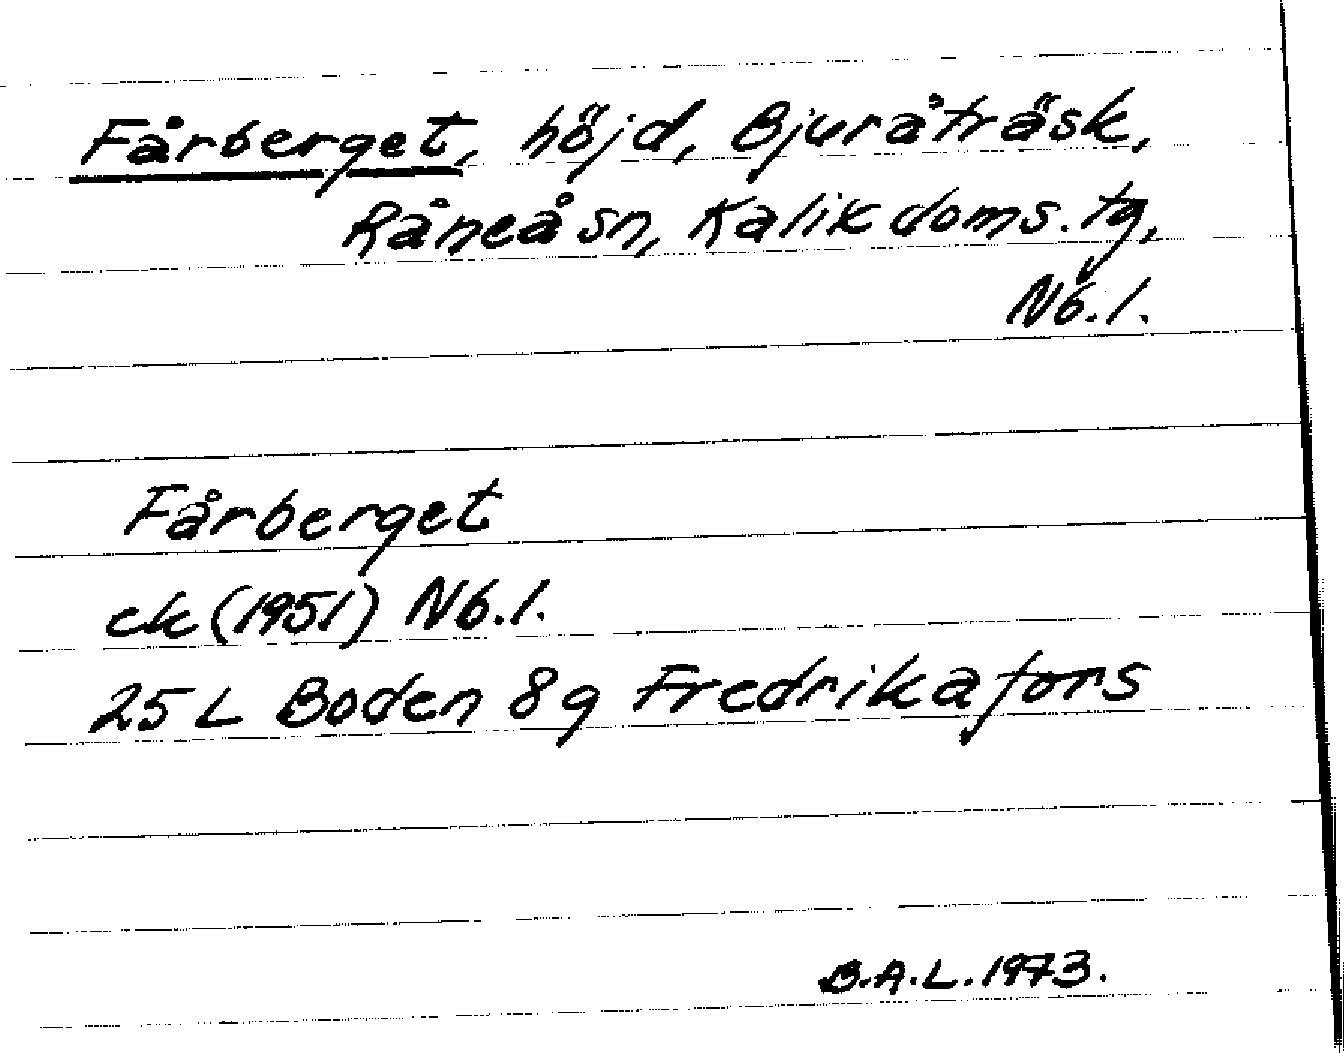 Fårberget, höjd, Bjuråträsk,
Råneå sn, Kalix doms. tg,
Nb. l.
Fårberget
ek (1951) Nb. l.
25 L Boden 8g Fredrikafors
B.A.L. 1973.